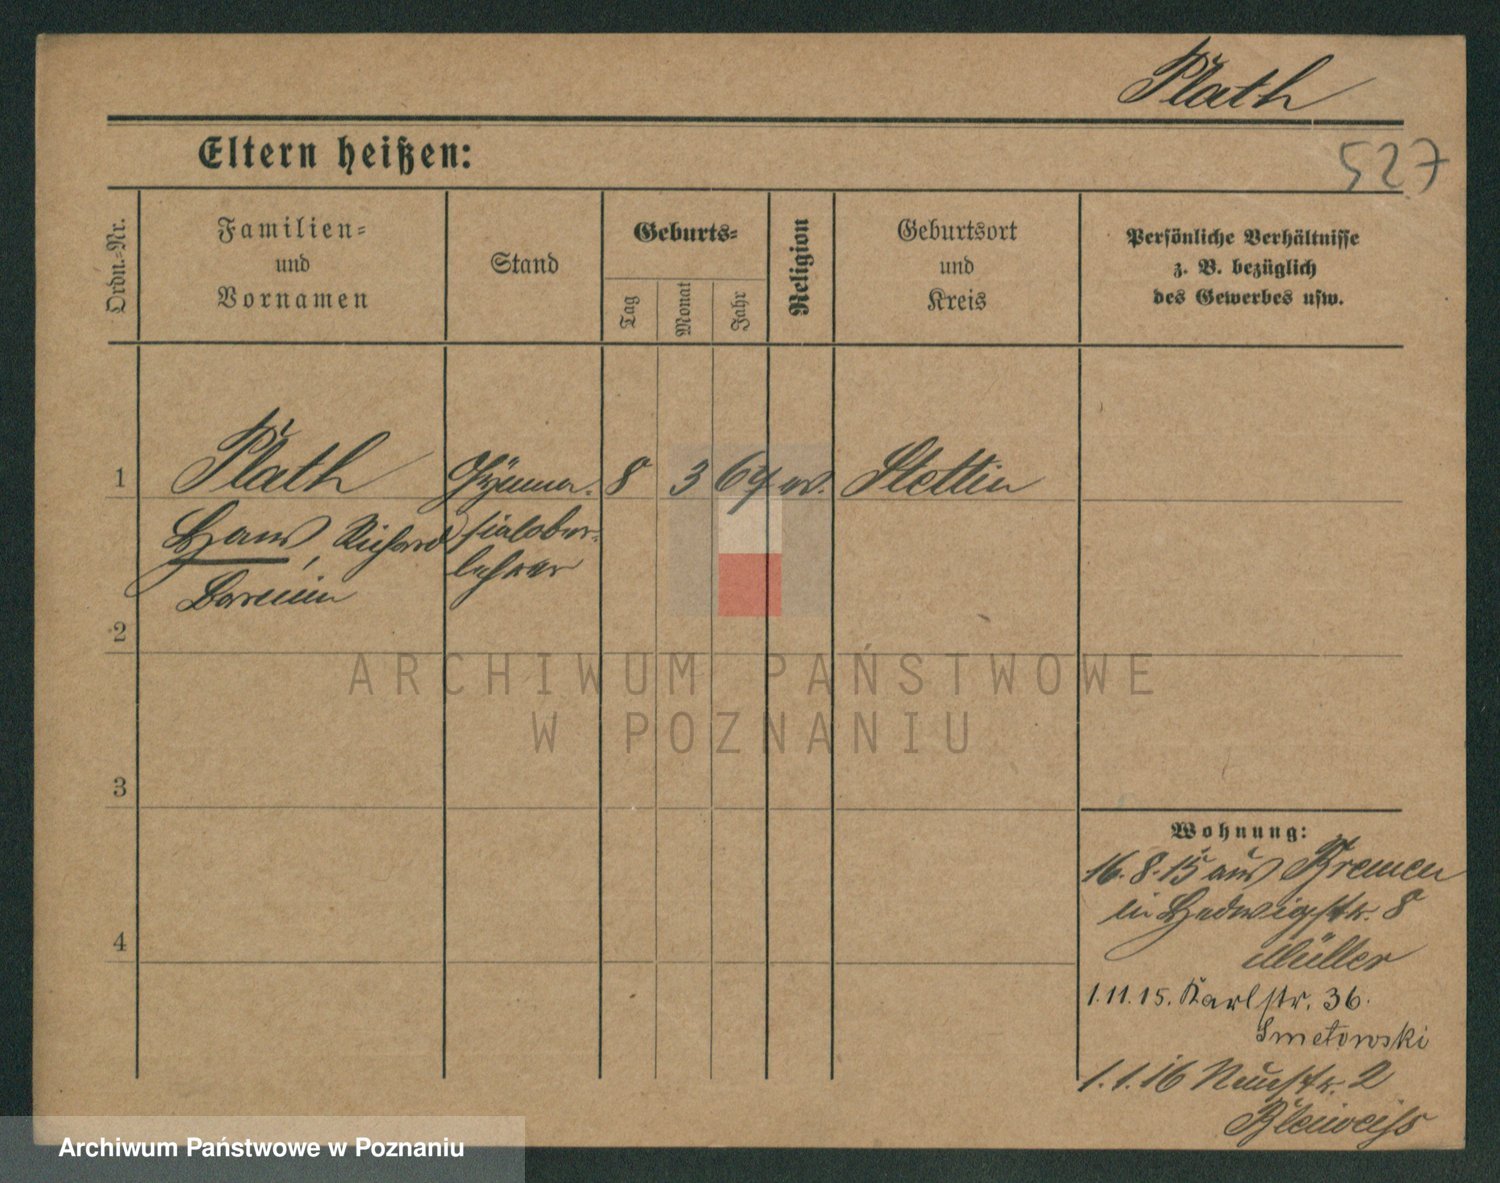 Plath
527
Eltern heißen:
Ordn.-Nr.
Familien-
und
Vornamen
Stand
Geburts-
Tag
Monat
Jahr
Religion
Geburtsort
und
Kreis
Persönliche Verhältnisse
z. B. bezüglich
des Gewerbes usw.
1
Plath
Gymna-
8
3
64
ev.
Stettin
Hans, Richard
sialober-
lehrer
2
ARCHIWUM PAŃSTWOWE
W POZNANIU
3
Wohnung:
16.8.15 aus Bremen
in Hedwigstr. 8
Müller
4
1.11.15. Karlstr. 36.
Smetowski
1.1.16 Neuestr. 2
Bleiweiss
Archiwum Państwowe w Poznaniu